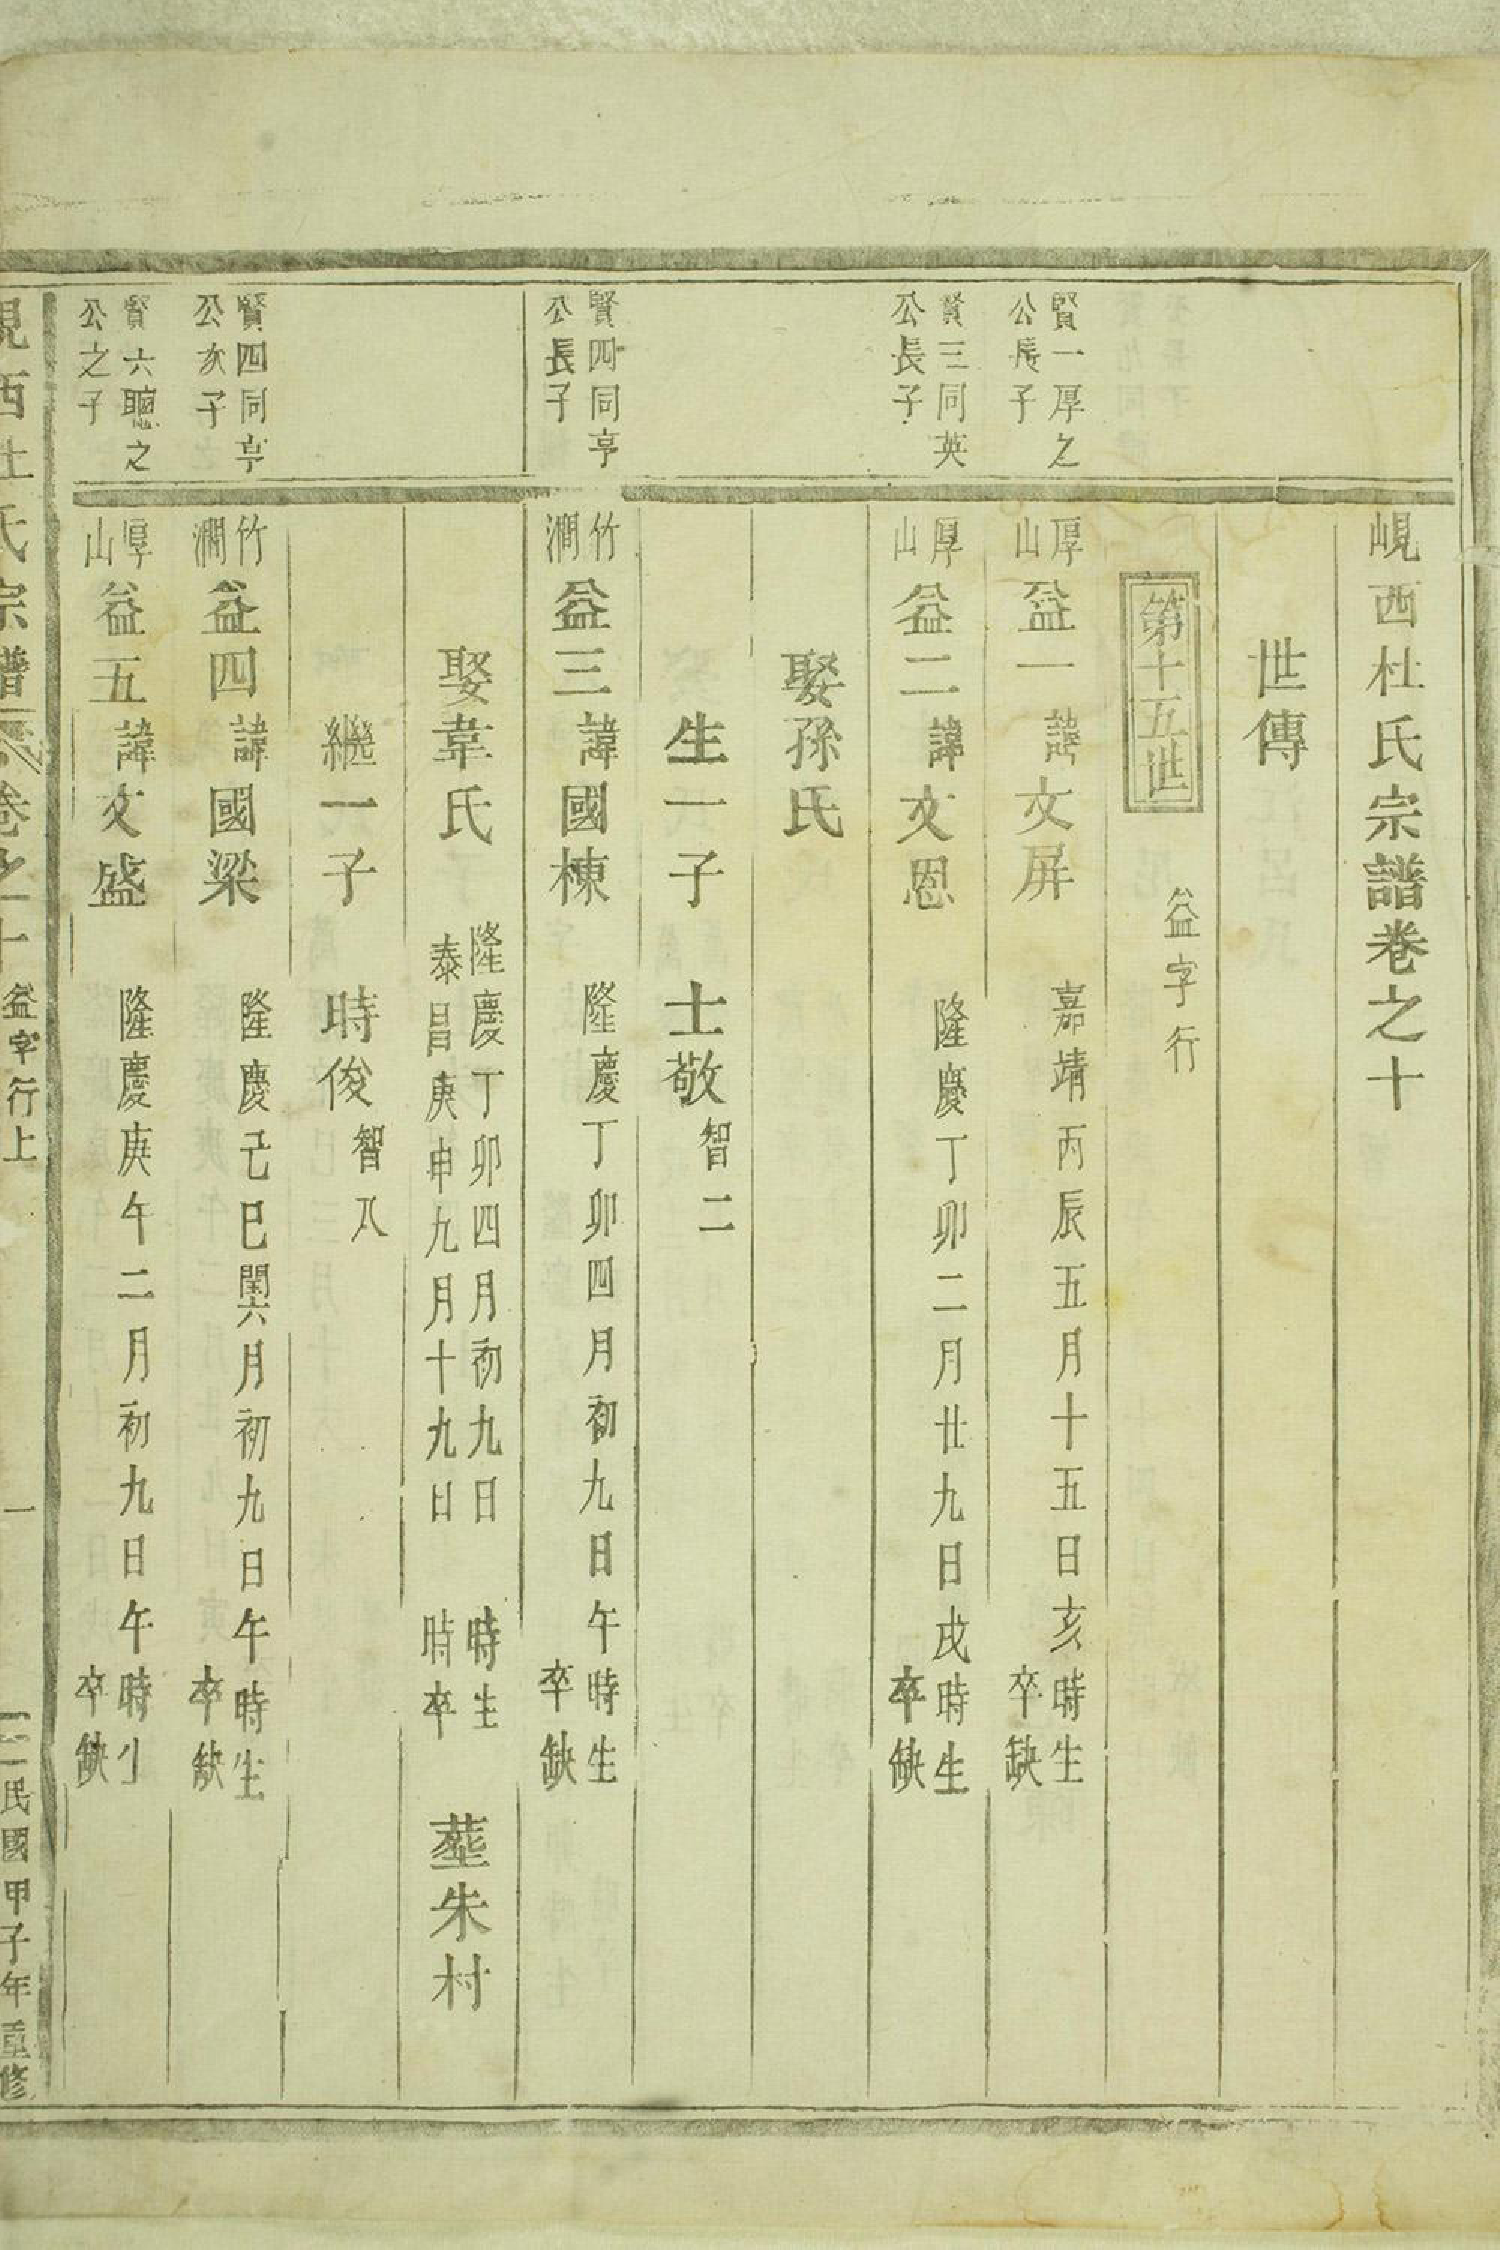 峴西杜氏宗譜卷之十
世傳
第十五世
益字行
賢一厚之
公長子
厚山
益一諱文屏
嘉靖丙辰五月十五日亥時生
卒缺
賢三同英
公長子
厚山
益二諱文恩
隆慶丁卯二月廿九日戌時生
卒缺
娶孫氏
生一子 士敬智二
賢四同亨
公長子
竹澗
益三諱國棟
隆慶丁卯四月初九日午時生
卒缺
娶韋氏
隆慶丁卯四月初九日 時生
泰昌庚申九月十九日 時卒
塟朱村
繼一子 時俊智八
賢四同亨
公次子
竹澗
益四諱國梁
隆慶己巳閏六月初九日午時生
卒缺
賢六聰之
公之子
厚山
益五諱文盛
隆慶庚午二月初九日午時生
卒缺
峴西杜氏宗譜 卷之十 益字行上 一 民國甲子年重修